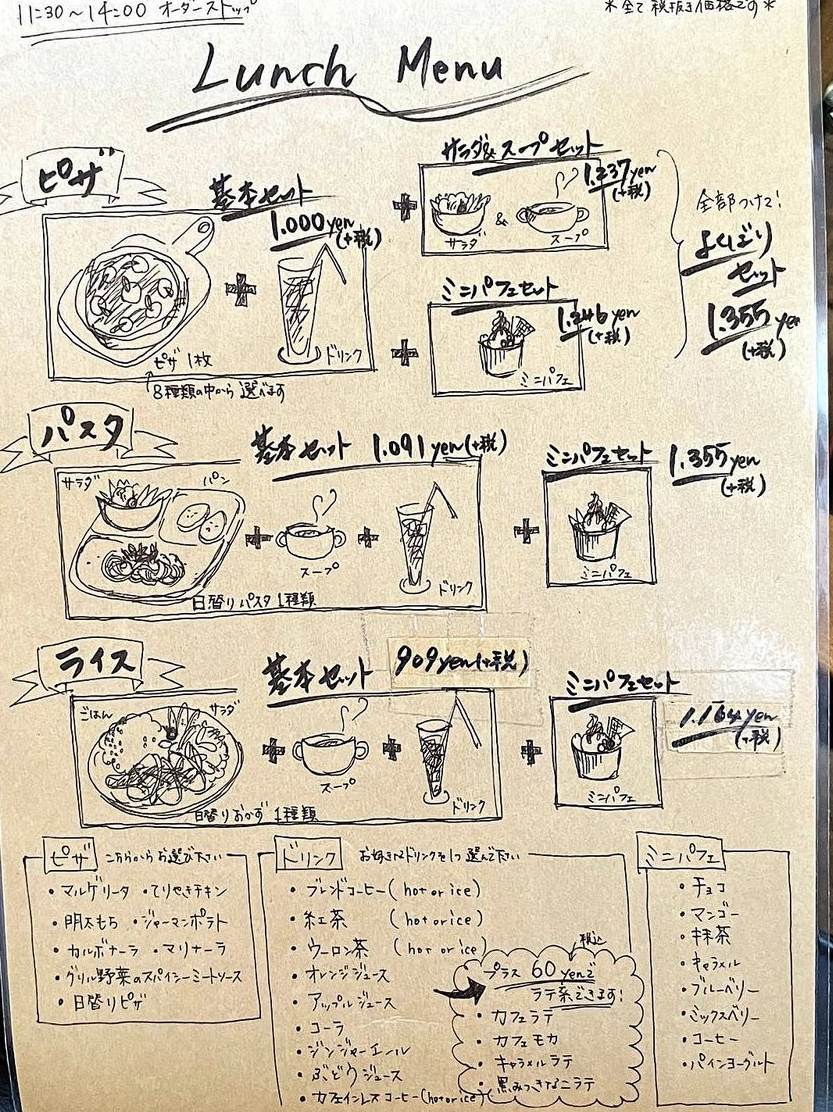 11:30～14:00 オーダーストップ
＊全て税抜き価格です＊
Lunch Menu
ピザ
基本セット
1.000yen
(+税)
ピザ 1枚
8種類の中から 選べます
ドリンク
サラダ&スープセット
1.237yen
(+税)
サラダ
&
スープ
ミニパフェセット
1.246yen
(+税)
ミニパフェ
全部つけて!
よくばり
セット
1.355yen
(+税)
パスタ
基本セット 1.091yen(+税)
サラダ
パン
スープ
ドリンク
日替りパスタ 1種類
ミニパフェセット
1.355yen
(+税)
ミニパフェ
ライス
基本セット 909yen(+税)
ごはん
サラダ
スープ
ドリンク
日替りおかず 1種類
ミニパフェセット
1.164yen
(+税)
ミニパフェ
ピザ こちらからお選び下さい
・マルゲリータ ・てりやきチキン
・明太もち ・ジャーマンポテト
・カルボナーラ ・マリナーラ
・グリル野菜のスパイシーミートソース
・日替りピザ
ドリンク お好きなドリンクを1つ選んで下さい
・ブレンドコーヒー(hot or ice)
・紅茶 (hot or ice)
・ウーロン茶 (hot or ice)
・オレンジジュース
・アップルジュース
・コーラ
・ジンジャーエール
・ぶどうジュース
・カフェインレスコーヒー(hot or ice)
税込
プラス 60 yenで
ラテ系できます!
・カフェラテ
・カフェモカ
・キャラメルラテ
・黒みつきなこラテ
ミニパフェ
・チョコ
・マンゴー
・抹茶
・キャラメル
・ブルーベリー
・ミックスベリー
・コーヒー
・パインヨーグルト